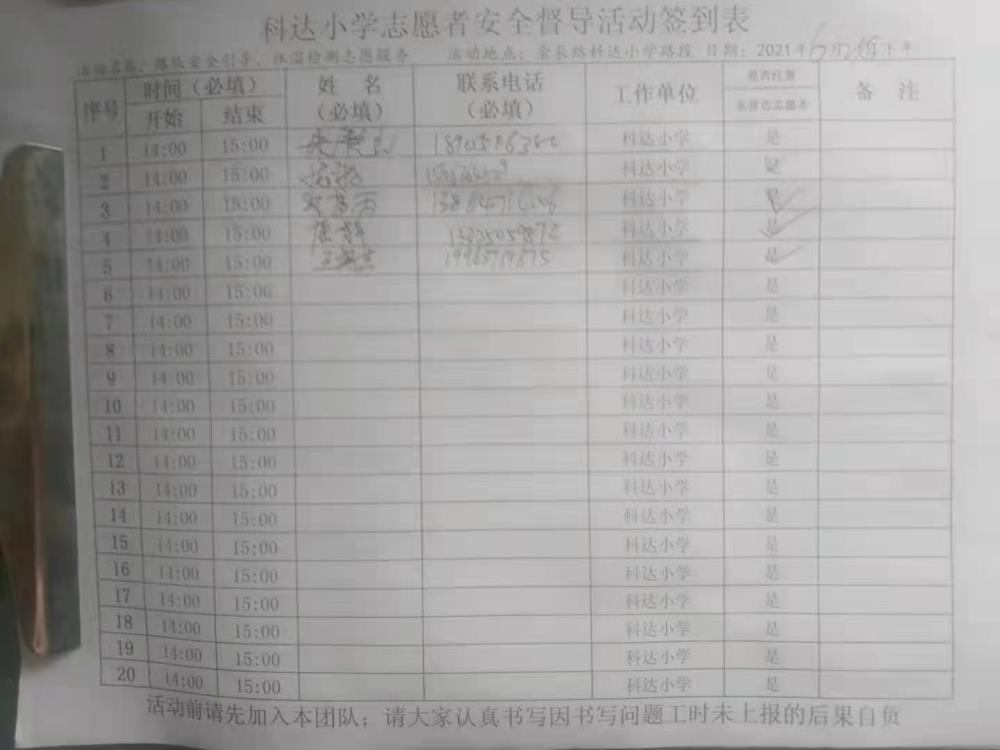 科达小学志愿者安全督导活动签到表
活动名称：路队安全引导、体温检测志愿服务 活动地点：金辰路科达小学路段 日期：2021年6月 日下午
序号 时间（必填） 姓 名（必填） 联系电话（必填） 工作单位 是否注册东营市志愿者 备 注
开始 结束
1 14:00 15:00 科达小学 是
2 14:00 15:00 科达小学 是
3 14:00 15:00 科达小学 是
4 14:00 15:00 唐静 13325059872 科达小学 是
5 14:00 15:00 科达小学 是
6 14:00 15:00 科达小学 是
7 14:00 15:00 科达小学 是
8 14:00 15:00 科达小学 是
9 14:00 15:00 科达小学 是
10 14:00 15:00 科达小学 是
11 14:00 15:00 科达小学 是
12 14:00 15:00 科达小学 是
13 14:00 15:00 科达小学 是
14 14:00 15:00 科达小学 是
15 14:00 15:00 科达小学 是
16 14:00 15:00 科达小学 是
17 14:00 15:00 科达小学 是
18 14:00 15:00 科达小学 是
19 14:00 15:00 科达小学 是
20 14:00 15:00 科达小学 是
活动前请先加入本团队；请大家认真书写因书写问题工时未上报的后果自负